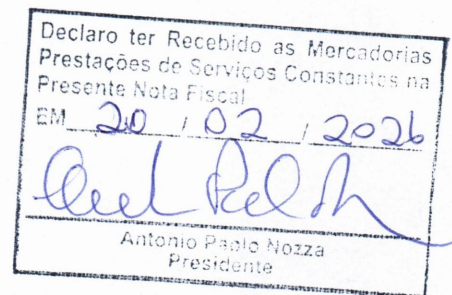 Declaro ter Recebido as Mercadorias
Prestações de Serviços Constantes na
Presente Nota Fiscal
EM 20 / 02 / 2026
Antonio Paolo Nozza
Presidente